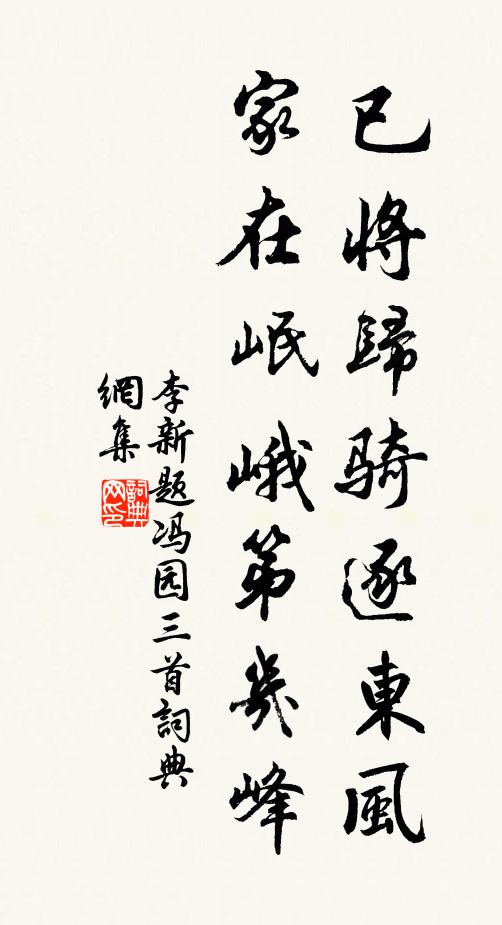 已將歸騎逐東風
家在岷峨第幾峰
李新题冯园三首詞典
網集
詞典
网印